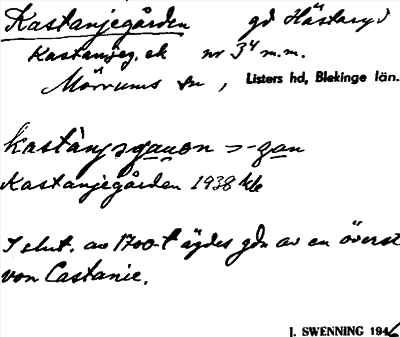 Kastanjegården gd Hästaryd
Kastanjeg. ek nr 3⁴ m.m.
Mörrums sn, Listers hd, Blekinge län.
Kastanjegården 1938 kbe
I slut. av 1700-t ägdes gdn av en överst
von Castanie.
J. SWENNING 1946